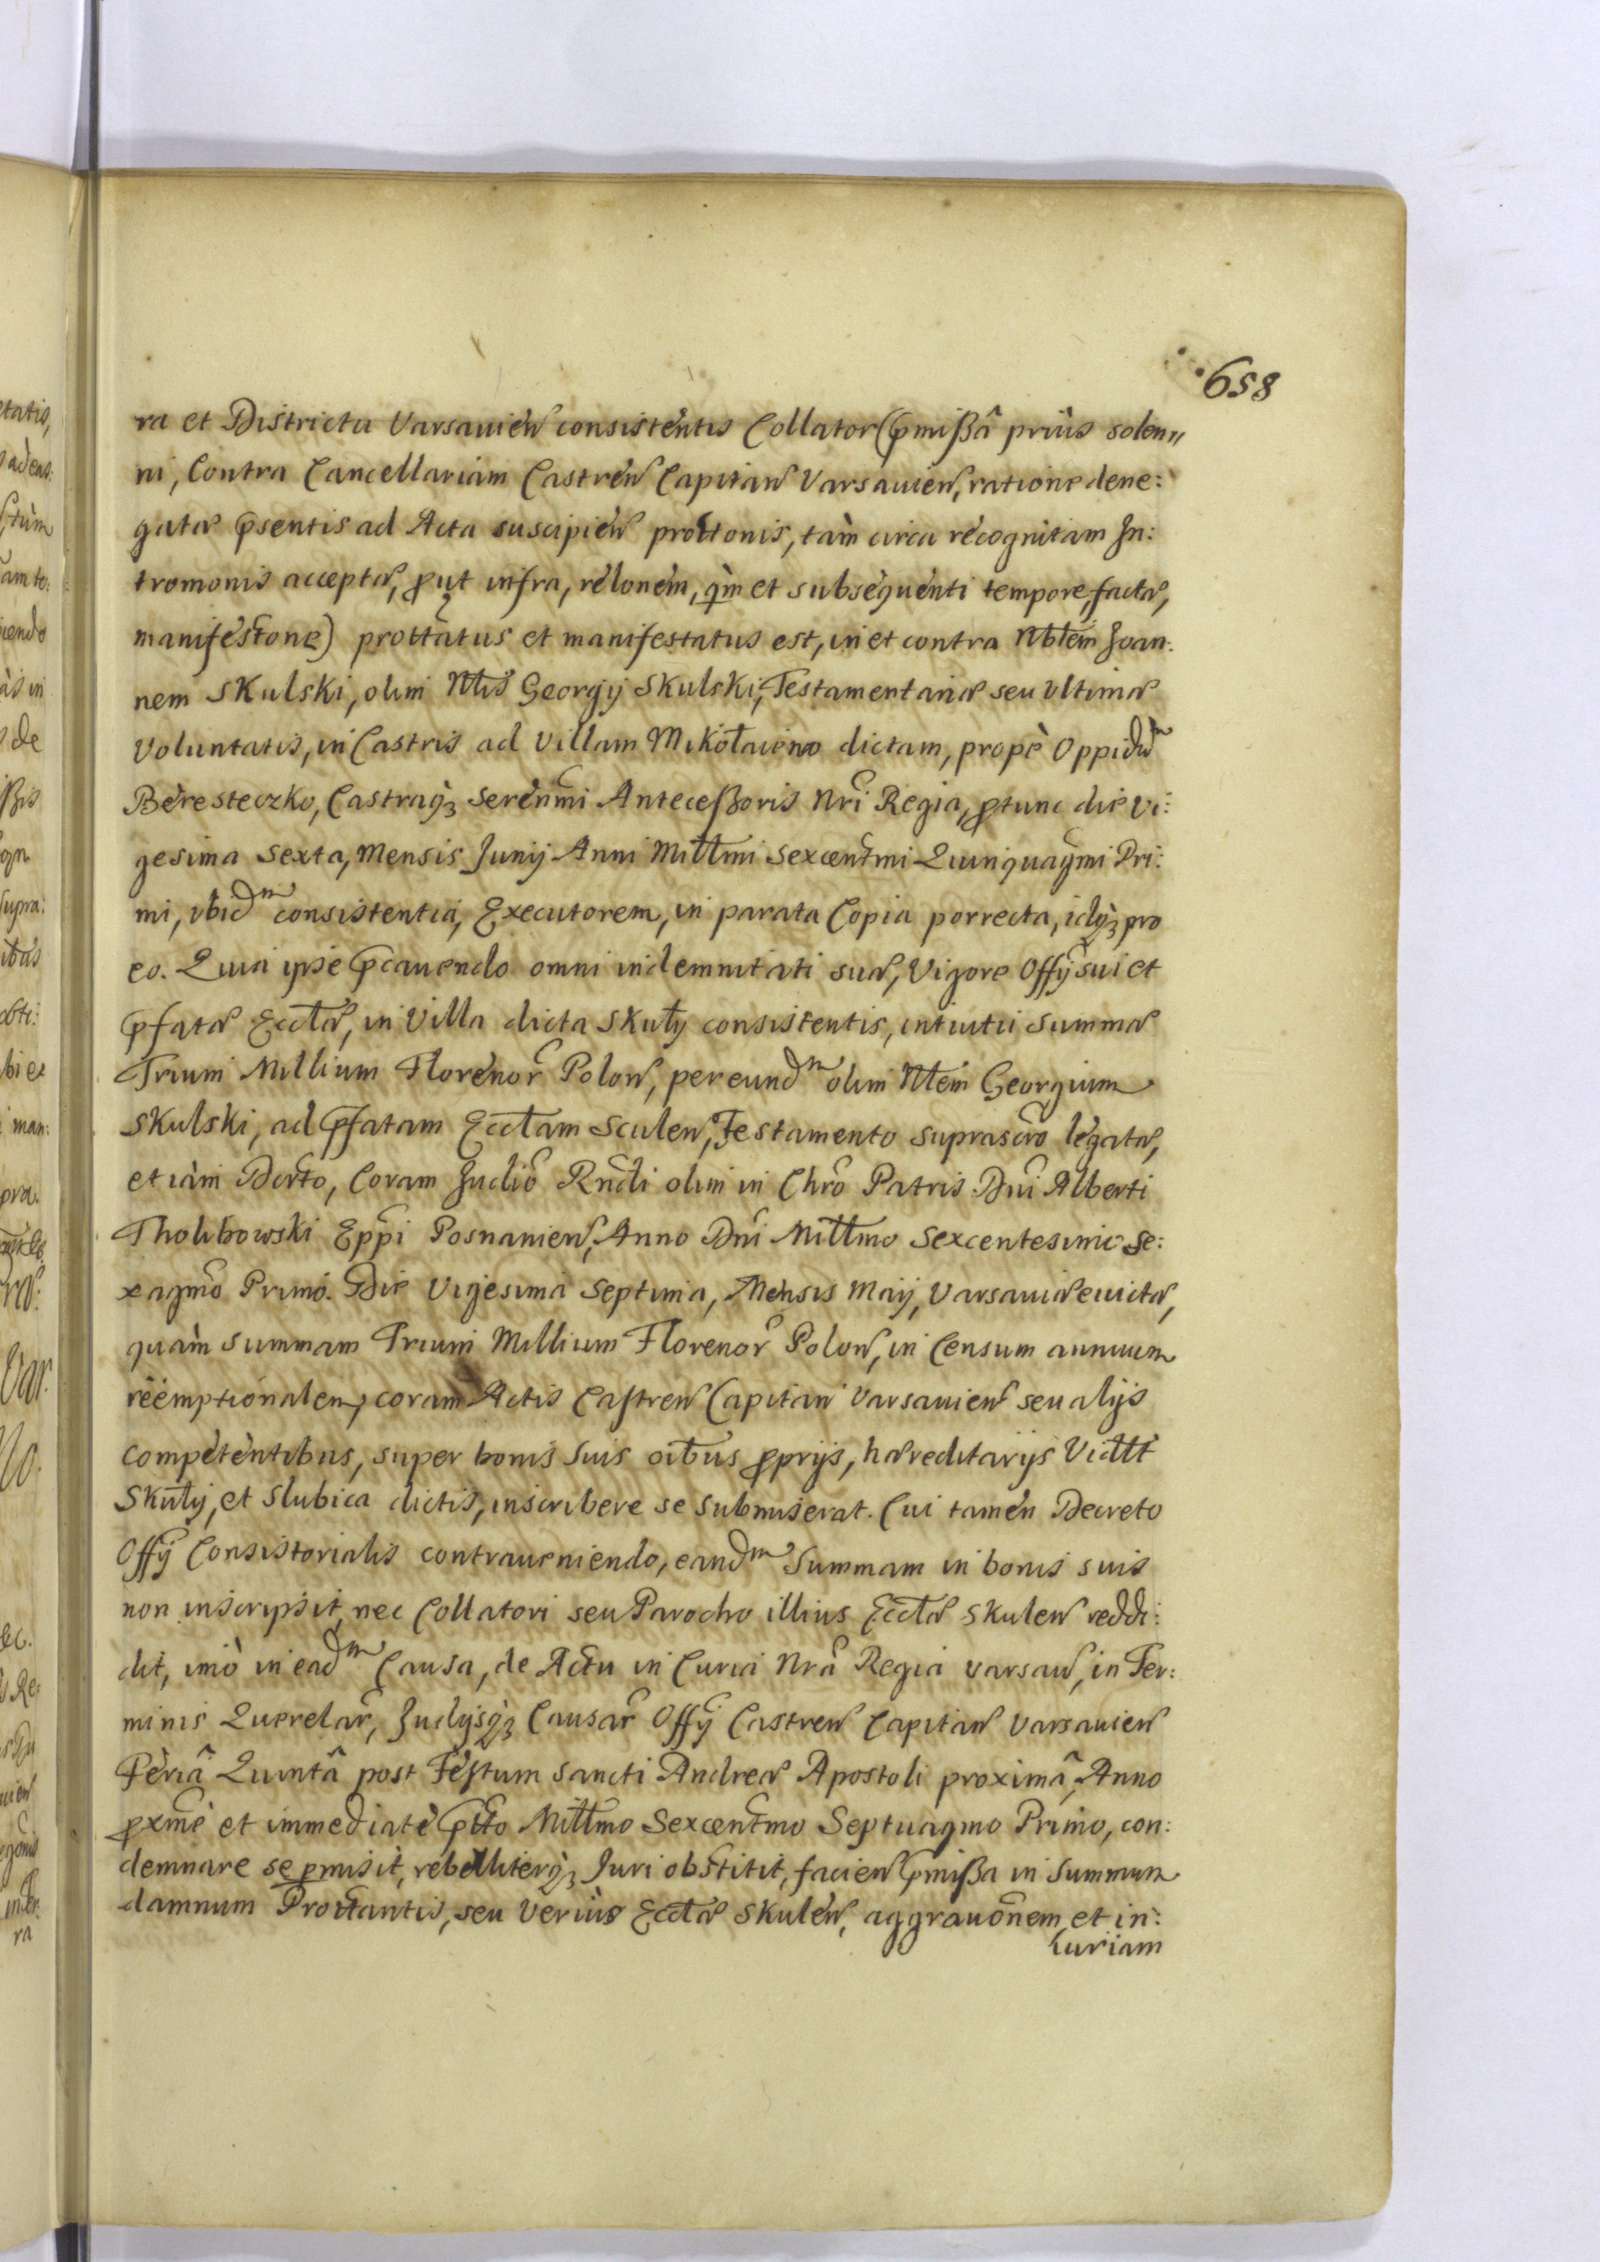 658
ra et Districtu Varsauień consistentis Collator (pmißâ priùs solen„
ni, Contra Cancellariam Castreń Capitań Varsauień, ratione dene:
gatæ psentis ad Acta suscipień prottonis, tàm circa recognitam In:
tromonis acceptæ, put infra, relonem, qm et subsequenti tempore, factæ,
manifestone) prottatus et manifestatus est, in et contra Nbtem Joan:
nem Skulski, olim Ntis Georgij Skulski, Testamentariæ seu Vltimæ
Voluntatis, in Castris ad Villam Mikołaiewo dictam, propè Oppidum
Beresteczko, Castraq3 Serenmi Anteceßoris Nri Regia, ptunc die Vi:
gesima Sexta, Mensis Junij Anni Milłmi Sexcentmi Quinquagmi Pri:
mi, ibidm consistentia, Executorem, in parata Copia porrecta, idq3 pro
eo. Quia ipse pcauendo omni indemnitati suæ, Vigore Offij sui et
pfatæ Ecclæ, in Villa dicta Skuły consistentis, intuitu Summæ
Trium Millium Florenor Poloń, per eundm olim Ntem Georgium
Skulski, ad pfatam Ecctam Sculeń, Testamento suprascro legatæ,
et iàm Dcrto, Coram Judio Rndi olim in Chro Patris Dni Alberti
Tholibowski Eppi Posnanień, Anno Dni Milłmo Sexcentesimo Se:
xagmo Primo. Die Vigesima Septima, Mensis Maij, Varsauiæ euictæ,
quàm summam Trium Millium Florenor Poloń, in Censum annuum
reemptionalem, coram Actis Castreń Capitań Varsauień seu alijs
competentibus, super bonis suis oibus pprijs, hæreditarijs Vidtt
Skuły, et Slubica dictis, inscribere se submiserat. Cui tamen Decreto
Offij Consistorialis contraueniendo, eandm Summam in bonis suis
non inscripsit, nec Collatori seu Parocho illius Ecclæ Skuleń reddi:
dit, imò in eadm Causa, de Actu in Curia Nra Regia Varsań, in Ter:
minis Querelar, Judijsq3 Causar Offij Castreń Capitań Varsauień
Feriâ Quintâ post Festum Sancti Andreæ Apostoli proximâ, Anno
pxmè et immediatè pttto Milłmo Sexcentmo Septuagmo Primo, con:
demnare se pmisit, rebelliterq3 Juri obstitit, facień pmißa in Summum
damnum Prottantis, seu Verius Ecclæ Skuleń, aggrauonem et in:
iuriam